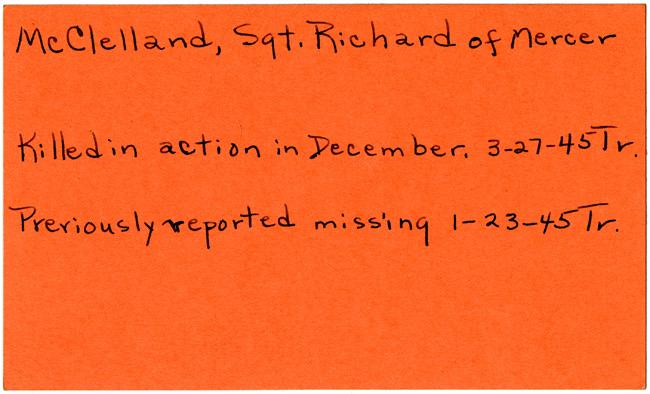 McClelland, Sgt. Richard of Mercer
Killed in action in December. 3-27-45 Tr.
Previously reported missing 1-23-45 Tr.